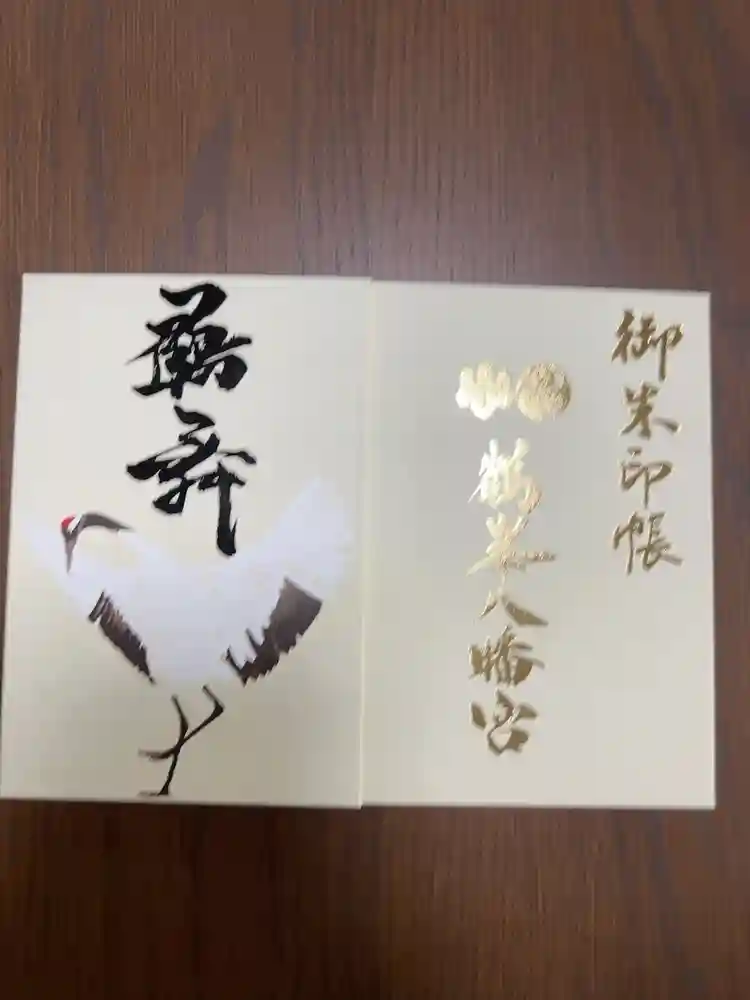 御朱印帳
鶴峯八幡宮
鶴舞